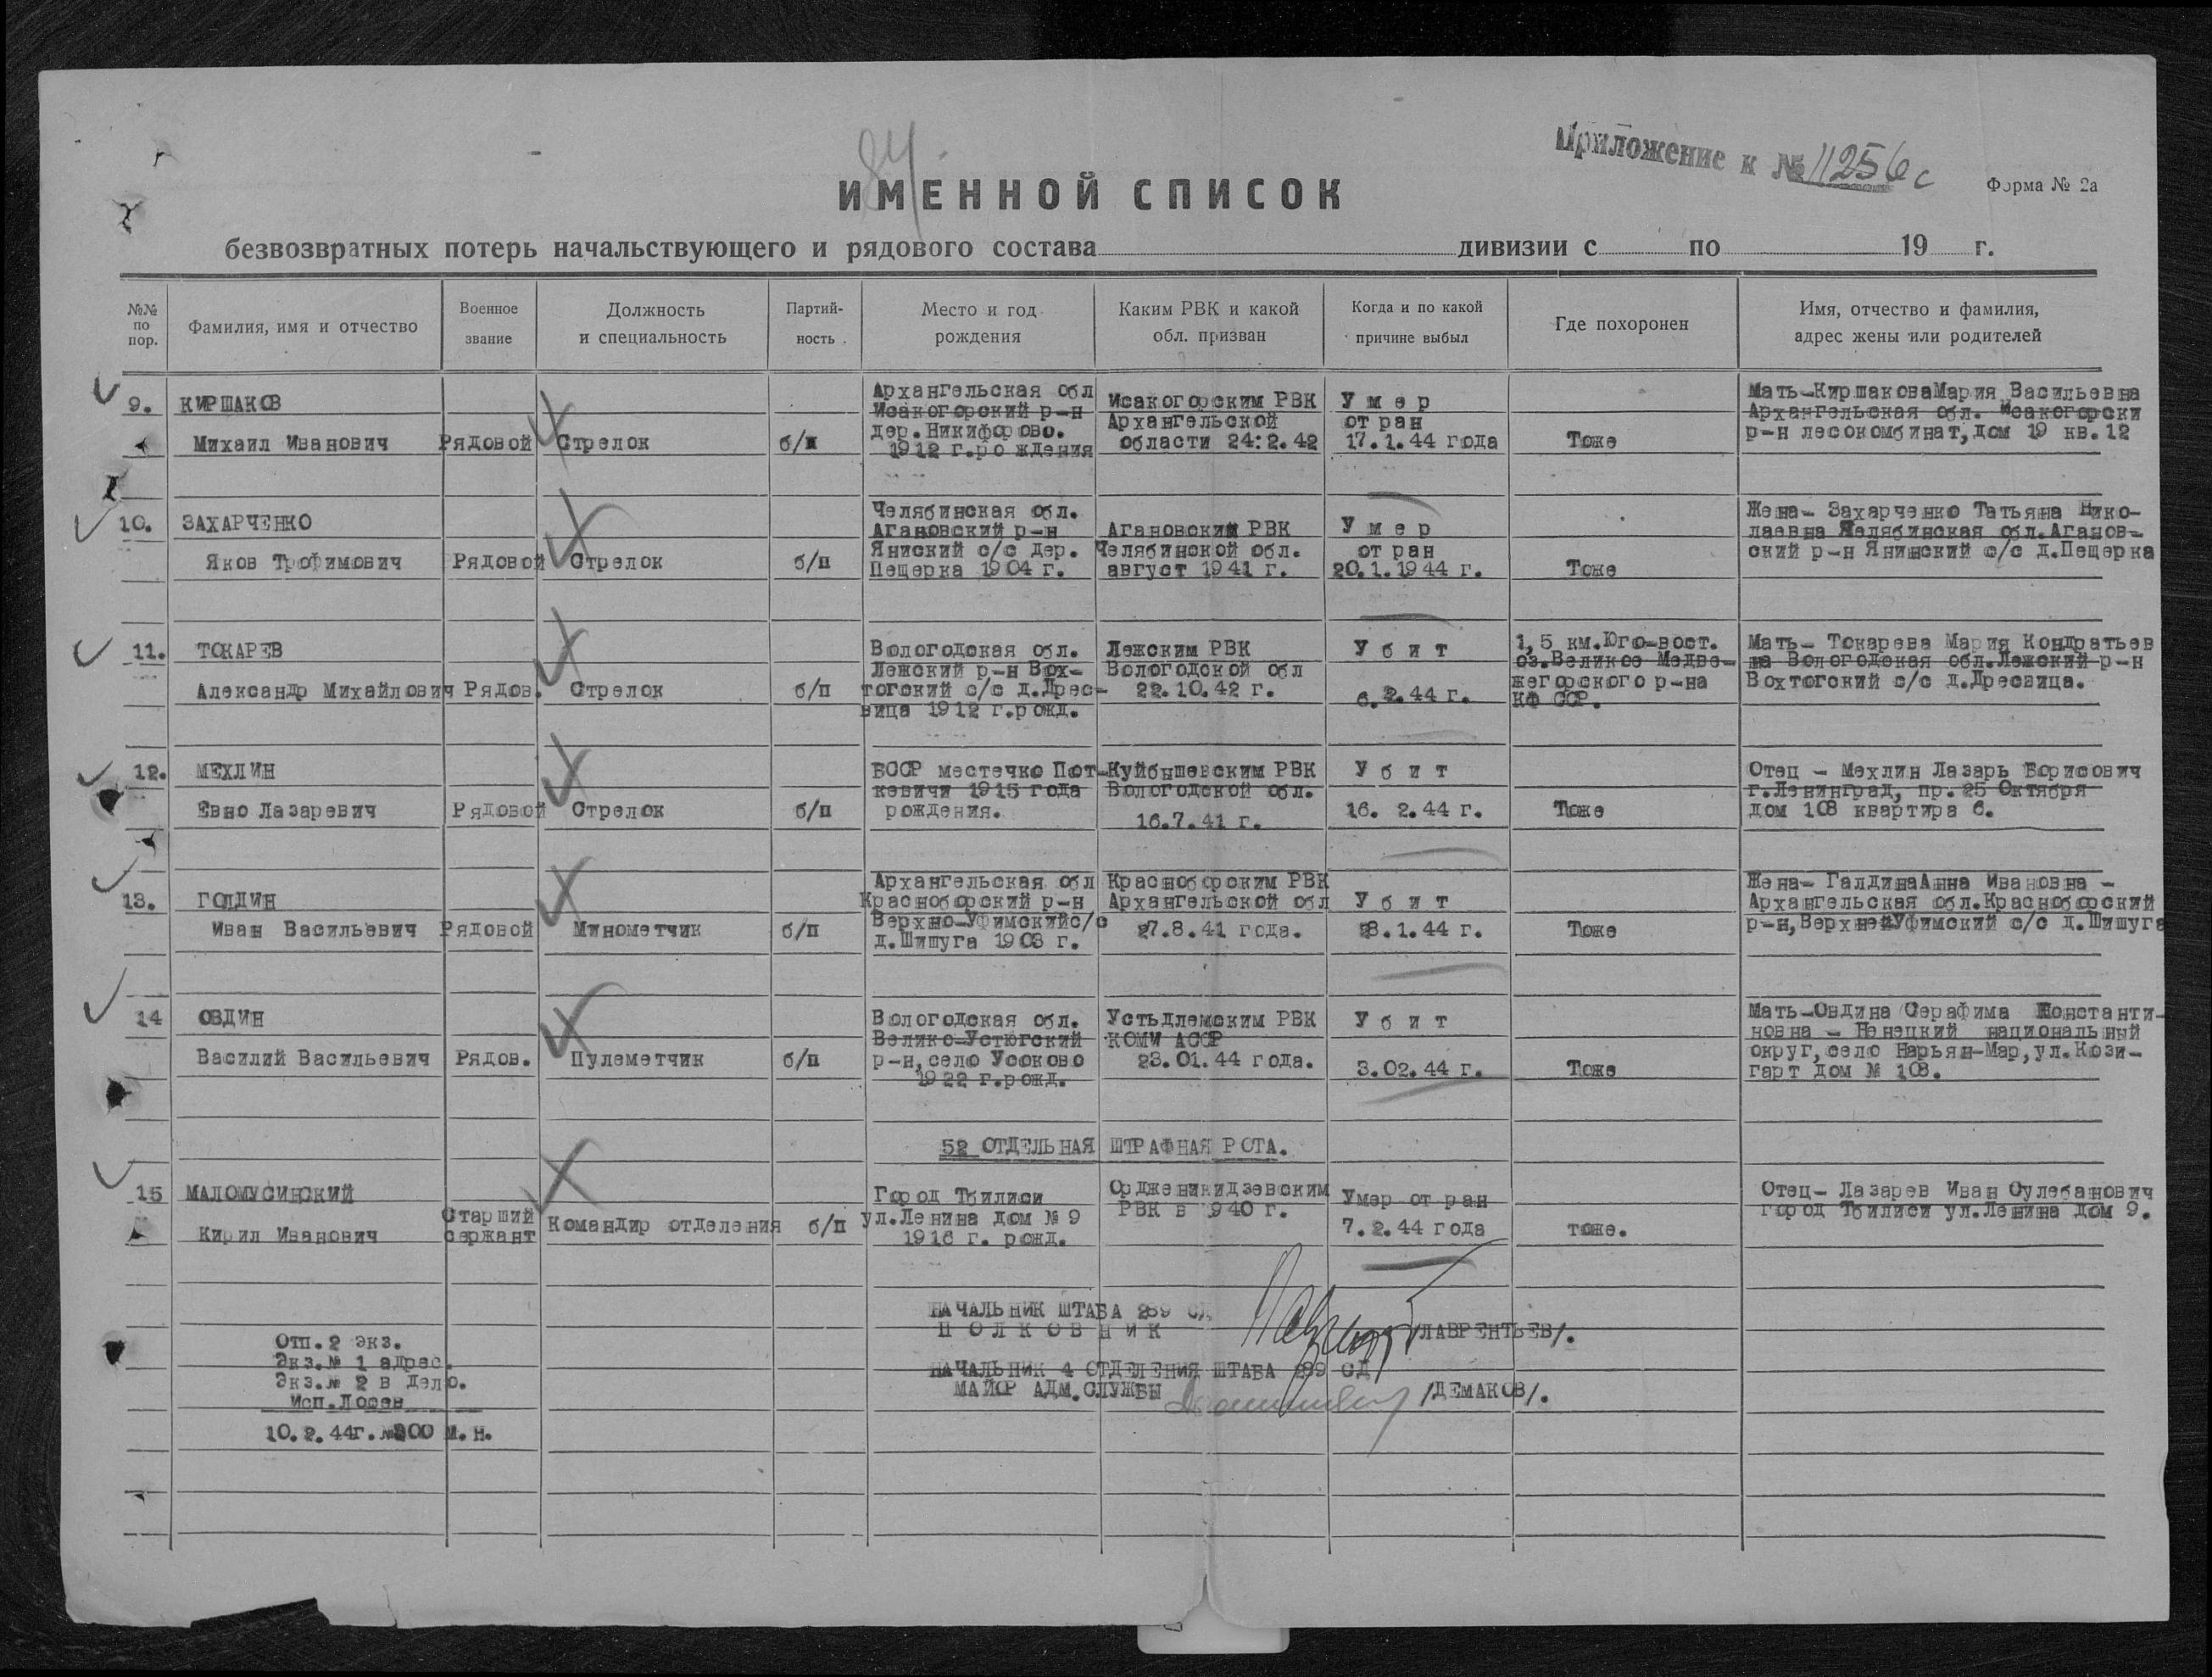 84.
Приложение к № 11256с
Форма № 2а
ИМЕННОЙ СПИСОК
безвозвратных потерь начальствующего и рядового состава дивизии с по 19 г.
№№ по пор.
Фамилия, имя и отчество
Военное звание
Должность и специальность
Партий-ность
Место и год рождения
Каким РВК и какой обл. призван
Когда и по какой причине выбыл
Где похоронен
Имя, отчество и фамилия, адрес жены или родителей
9.
КИРШАКОВ
Михаил Иванович
Рядовой
Стрелок
б/п
Архангельская обл
Исакогорский р-н
дер.Никифорово.
1912 г.рождения
Исакогорским РВК
Архангельской
области 24:2.42
Умер
от ран
17.1.44 года
Тоже
Мать-КиршаковаМария Васильевна
Архангельская обл. Исакогорски
р-н лесокомбинат,дом 19 кв.12
10.
ЗАХАРЧЕНКО
Яков Трофимович
Рядовой
Стрелок
б/п
Челябинская обл.
Агановский р-н
Яниский с/с дер.
Пещерка 1904 г.
Агановский РВК
Челябинской обл.
август 1941 г.
Умер
от ран
20.1.1944 г.
Тоже
Жена- Захарченко Татьяна Нико-
лаевна Челябинская обл.Аганов-
ский р-н Янинский с/с д.Пещерка
11.
ТОКАРЕВ
Александр Михайлович
Рядов.
Стрелок
б/п
Вологодская обл.
Лежский р-н Вох-
тогский с/с д.Дрес-
вица 1912 г.рожд.
Лежским РВК
Вологодской обл
22.10.42 г.
Убит
6.2.44 г.
1,5 км.Юго-вост.
оз.Великое Медве-
жегорского р-на
КФ ССР.
Мать- Токарева Мария Кондратьев
на Вологодская обл.Лежский р-н
Вохтогский с/с д.Дресвица.
12.
МЕХЛИН
Евно Лазаревич
Рядовой
Стрелок
б/п
БССР местечко Пот-
кевичи 1915 года
рождения.
Куйбышевским РВК
Вологодской обл.
16.7.41 г.
Убит
16. 2.44 г.
Тоже
Отец - Мехлин Лазарь Борисович
г.Ленинград, пр.25 Октября
дом 108 квартира 6.
13.
ГОЛДИН
Иван Васильевич
Рядовой
Минометчик
б/п
Архангельская обл
Красноборский р-н
Верхно-Уфимскийс/с
д.Шишуга 1903 г.
Красноборским РВК
Архангельской обл
27.8.41 года.
Убит
28.1.44 г.
Тоже
Жена- ГалдинаАнна Ивановна -
Архангельская обл.Красноборский
р-н,ВерхнейУфимский с/с д.Шишуга
14
ОВДИН
Василий Васильевич
Рядов.
Пулеметчик
б/п
Вологодская обл.
Велико-Устюгский
р-н,село Усоково
1922 г.рожд.
Устьдлемским РВК
КОМИ АССР
23.01.44 года.
Убит
3.02.44 г.
Тоже
Мать-Овдина Серафима Константи-
новна - Ненецкий национальный
округ,село Нарьян-Мар,ул.Кози-
гарт дом № 103.
52 ОТДЕЛЬНАЯ ШТРАФНАЯ РОТА.
15
МАЛОМУСИНСКИЙ
Кирил Иванович
Старший
сержант
Командир отделения
б/п
Город Тбилиси
ул.Ленина дом № 9
1916 г. рожд.
Ордженикидзевским
РВК в 1940 г.
Умер от ран
7.2.44 года
тоже.
Отец- Лазарев Иван Сулебанович
город Тбилиси ул.Ленина дом 9.
НАЧАЛЬНИК ШТАБА 289 СД
ПОЛКОВНИК
/ЛАВРЕНТЬЕВ/.
НАЧАЛЬНИК 4 ОТДЕЛЕНИЯ ШТАБА 289 СД
МАЙОР АДМ.СЛУЖБЫ
/ДЕМАКОВ/.
Отп.2 экз.
Экз.№ 1 адрес.
Экз.№ 2 в дело.
Исп.Лосен
10.2.44г. №200 М.Н.